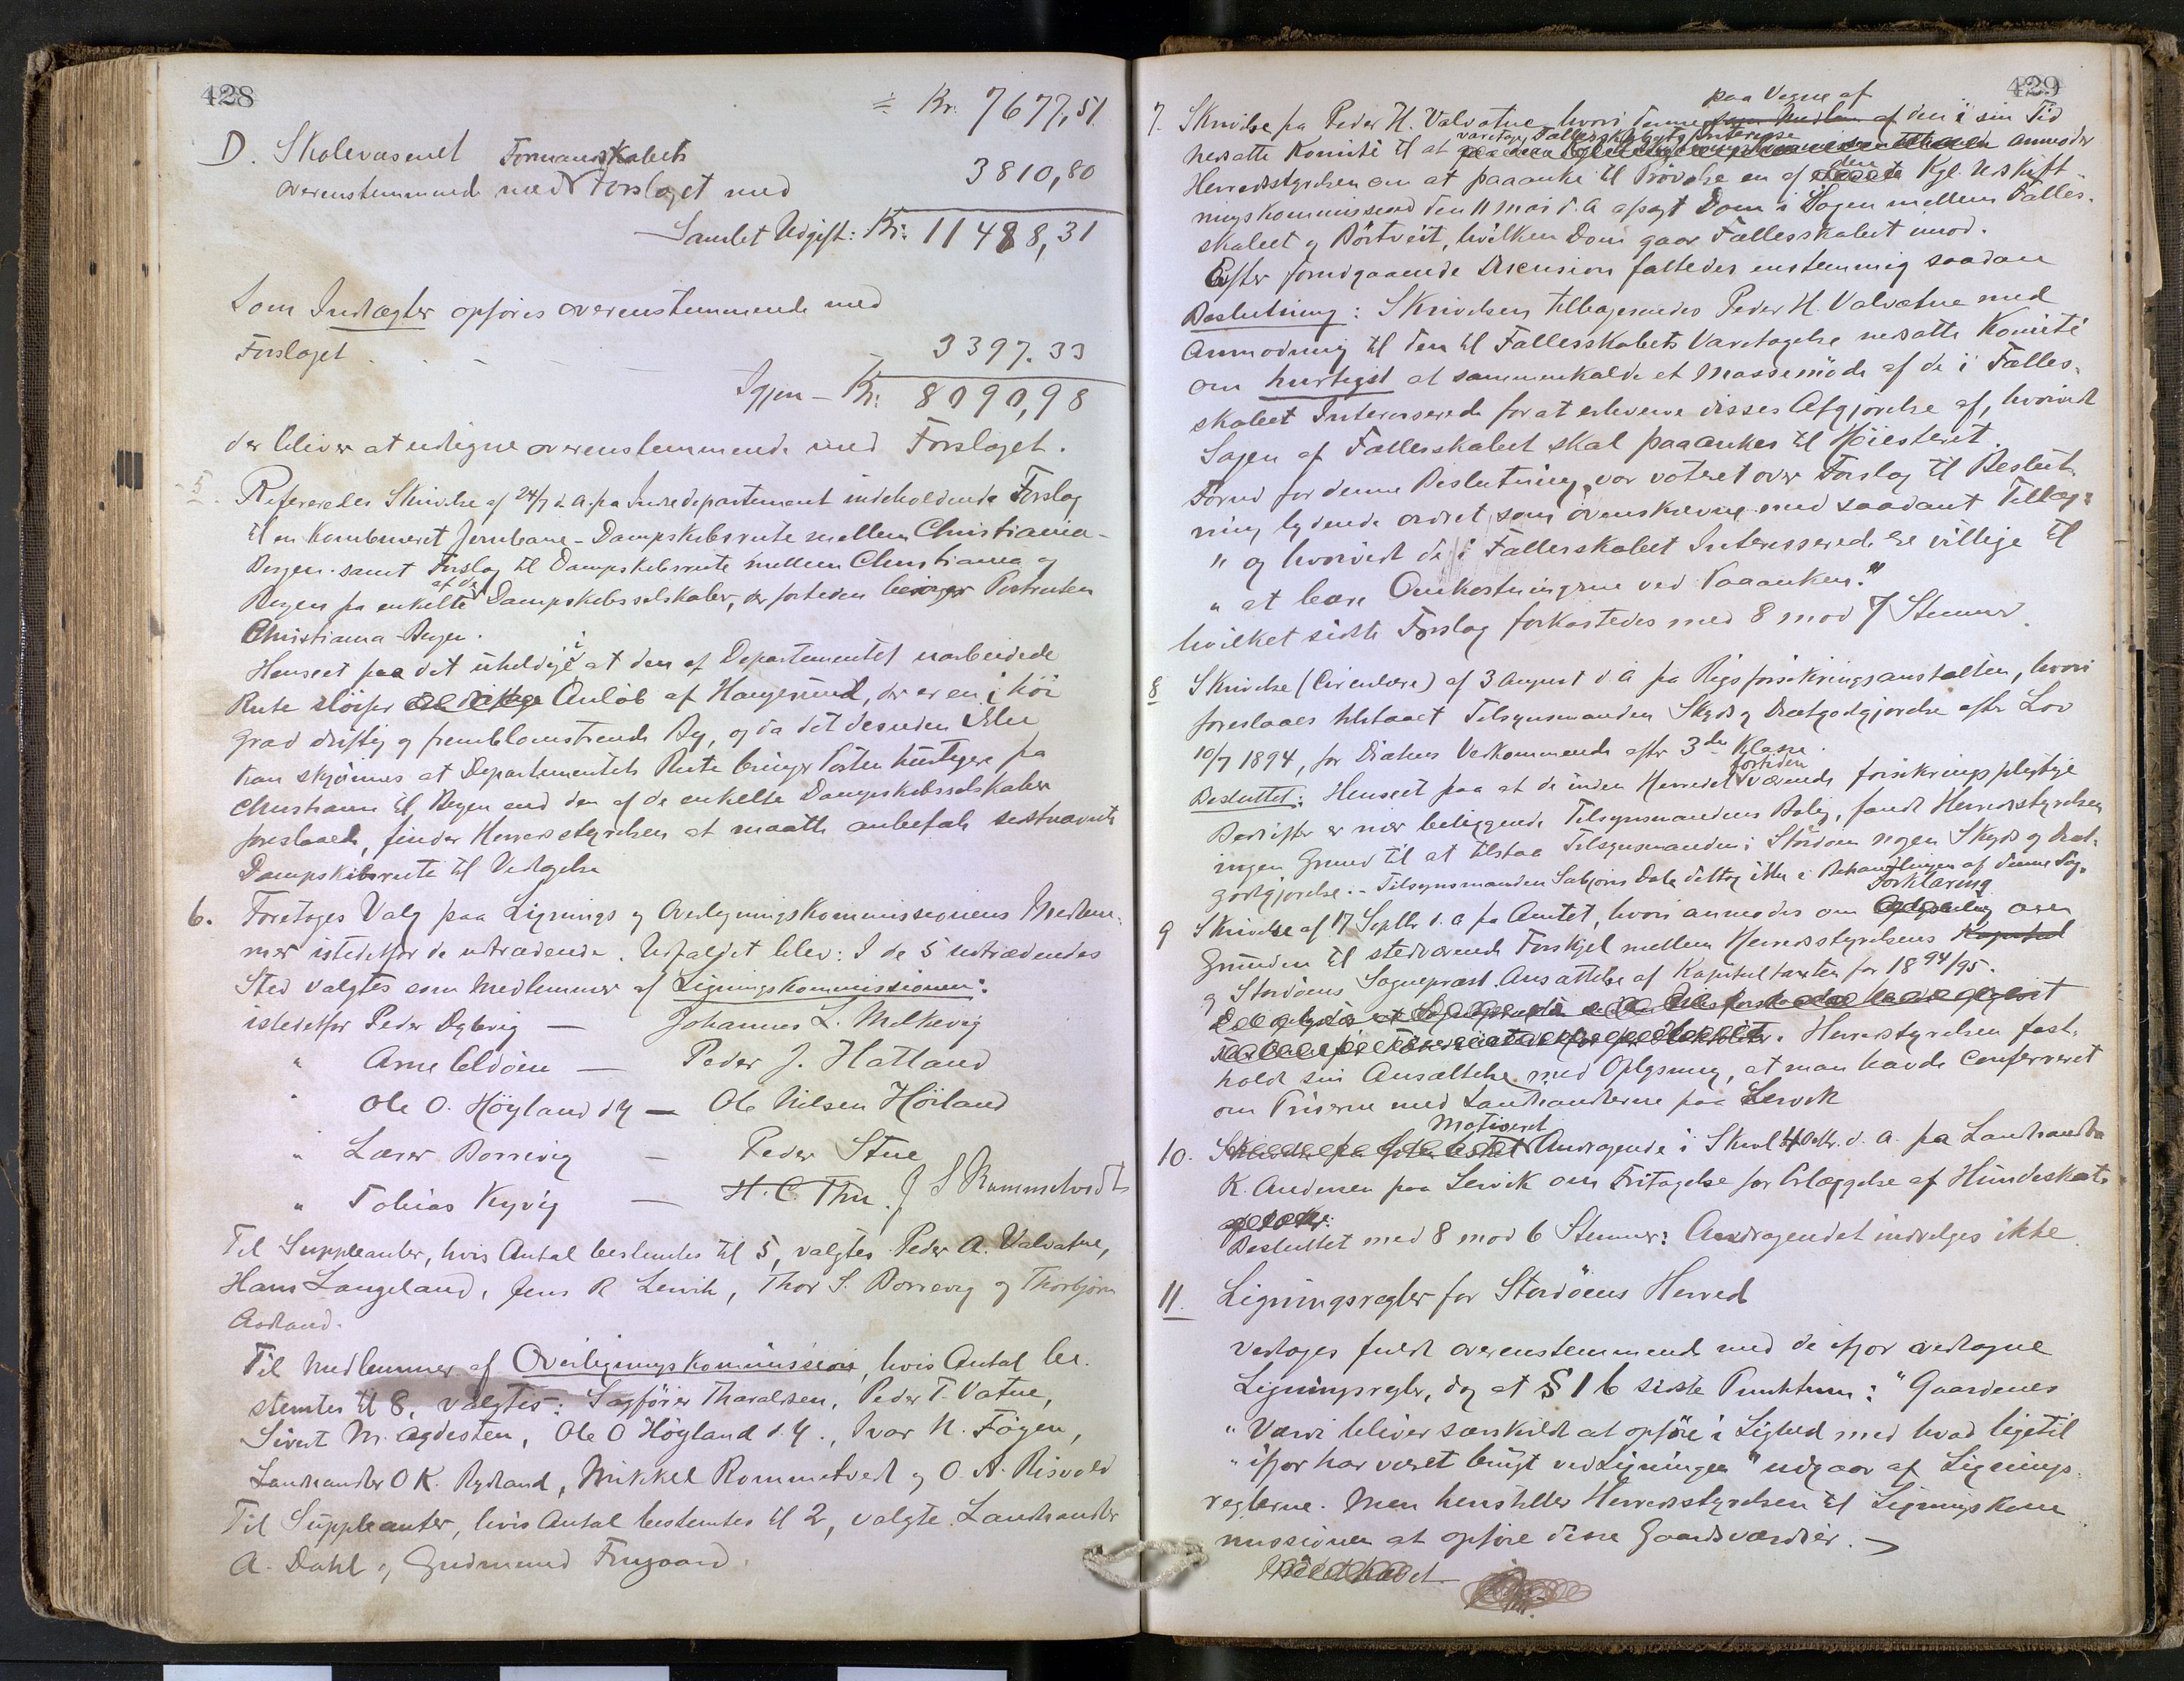 428
÷ Kr. 7677,51.
D. Skolevæsenet Formandskabets
overenstemmende med Forslaget med 3810,80
Samlet Udgift: Kr: 11488,31
Som Indtægter opføres overenstemmende med
Forslaget 3397.33
Igjen – Kr: 8090,98
der bliver at udligne overenstemmende med Forslaget.
5. Refereredes Skrivelse af 24/7 d.A. fra Indredepartement indeholdende Forslag
til en kombineret Jernbane-Dampskibsrute mellem Christiania-
Bergen samt Forslag til Dampskibsrute mellem Christiania og
Bergen fra enkelte af de Dampskibsselskaber, der fortiden besørger Postruten
Christiania-Bergen.
Henseet paa det uheldige i at den af Departementet udarbeidede
Rute sløifer Anløb af Haugesund, der er en i høi
Grad driftig og fremblomstrende By, og da det desuden ikke
kan skjønnes at Departementets Rute bringer Posten hurtigere fra
Christiania til Bergen end den af de enkelte Dampskibsselskaber
foreslaaede, finder Herredsstyrelsen at maatte anbefale sidstnævnte
Dampskibsrute til Vedtagelse
6. Foretoges Valg paa Lignings og Overligningskommissionens Medlem-
mer istedetfor de udtrædende. Udfaldet blev: I de 5 udtrædendes
Sted valgtes som Medlemmer af Ligningskommissionen:
istedetfor Peder Dybvig — Johannes L. Melkevig
" Arne Eldøen — Peder J. Hatland
" Ole O. Høyland d.y. — Ole Nilsen Høiland
" Lærer Borrevig — Peder Stue
" Tobias Kyvig — H. C. Thu. J S Rummelvedt
Til Suppleanter, hvis Antal bestemtes til 5, valgtes Peder A. Valvatne,
Hans Langeland, Jens R Lervik, Thor S. Borrevig og Thorbjørn
Aadland.
Til Medlemmer af Overligningskommission, hvis Antal be-
stemtes til 8, valgtes: Sagfører Tharaldsen, Peder T. Vatne,
Sivert M. Agdesten, Ole O Høyland d.y., Ivar N. Føyen,
Landhandler O K. Rydland, Mikkel Rommetvedt og O. A. Risvold
Til Suppleanter, hvis Antal bestemtes til 2, valgte Landhandler
A. Dahl og Gudmund Frugaard.
429
7. Skrivelse fra Peder H. Valvatne hvori denne paa Vegne af den i sin Tid
nedsatte Komité til at varetage Fællesskabets Interesse anmoder
Herredsstyrelsen om at paaanke til Prøvelse en af den Kgl. Udskift-
ningskommission den 11 Mai d.A afsagt Dom i Sagen mellem Fælles-
skabet og Børtveit, hvilken Dom gaar Fællesskabet imod.
Efter forudgaaende Discusion fattedes enstemmig saadan
Beslutning: Skrivelsen tilbagesendes Peder H. Valvatne med
Anmodning til den til Fællesskabets Varetagelse nedsatte Komité
om hurtigst at sammenkalde et Massemøde af de i Fælles-
skabet Interesserede for at erhverve disses Afgjørelse af, hvorvidt
Sagen af Fællesskabet skal paaankes til Høiesteret.
Forud for denne Beslutning var voteret over Forslag til Beslut-
ning lydende ordret som ovenskrevne med saadant Tillæg:
" og hvorvidt de i Fællesskabet Interesserede ere villige til
" at bære Omkostningerne ved Paaanken."
hvilket sidste Forslag forkastedes med 8 mod 7 Stemmer.
8 Skrivelse (Circulære) af 3 August d.A fra Rigsforsikringsanstalten, hvori
foreslaaes tilstaaet Tilsynsmanden Skyds og Diætgodtgjørelse efter Lov
10/7 1894, for Diæters Vedkommende efter 3die Klasse.
Besluttet: Henseet paa at de inden Herredet fortiden værende forsikringspligtige
Bedrifter er nær beliggende Tilsynsmandens Bolig, fandt Herredsstyrelsen
ingen Grund til at tilstaa Tilsynsmanden i Stordøen nogen Skyds og Diæt-
godtgjørelse. – Tilsynsmanden Salqjøns Dale deltog ikke i Behandlingen af denne Sag.
9 Skrivelse af 17 Septbr d.a fra Amtet, hvori anmodes om Forklaring over
Grunden til stedværende Forskjel mellem Herredsstyrelsens Kapitel
og Stordøens Sognepræst Ansættelse af Kapitelstaxten for 1894/95.
Herredsstyrelsen fast-
holdt sin Ansættelse med Oplysning, at man havde Conferreret
om Priserne med Landhandlerne paa Lervik
10. Motiveret Andragende i Skriv. 4 Oktbr. d. A. fra Landhandler
K. Andersen paa Lervik om Fritagelse for Erlæggelse af Hundeskat.
Besluttet med 8 mod 6 Stemmer: Andragendet indvilges ikke
11. Ligningsregler for Stordøens Herred
vedtoges fuldt overenstemmende med de ifjor vedtagne
Ligningsregler, dog at § 16 sidste Punktum: "Gaardenes
"Værdi bliver særskildt at opføre i Lighed med hvad ligetil
"ifjor har været brugt ved Ligningen" udgaar af Lignings-
reglerne. Men henstiller Herredsstyrelsen til Ligningskom
missionen at opføre disse Gaardsværdier.